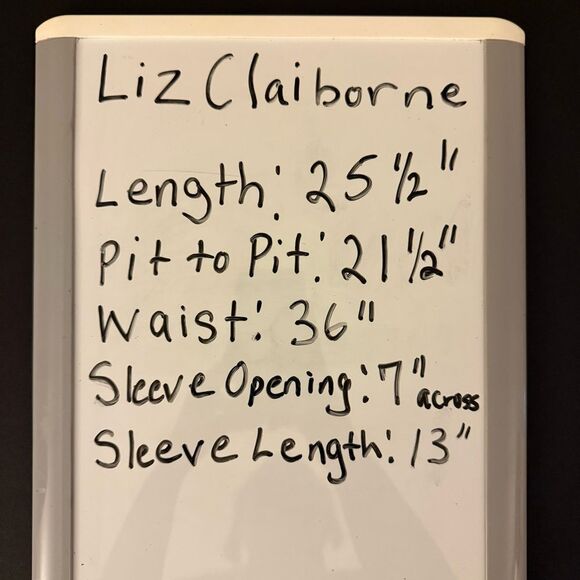 Liz Claiborne
Length: 25 1/2"
Pit to Pit: 21 1/2"
Waist: 36"
Sleeve Opening: 7" across
Sleeve Length: 13"